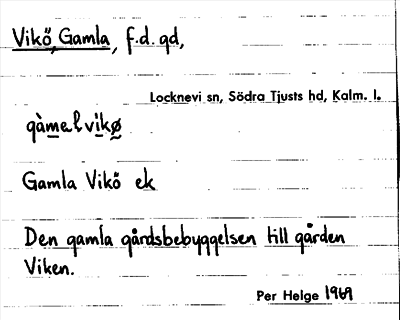 Vikö, Gamla, f.d. gd,
Locknevi sn, Södra Tjusts hd, Kalm. l.
gàmelvikø
Gamla Vikö ek
Den gamla gårdsbebyggelsen till gården
Viken.
Per Helge 1969